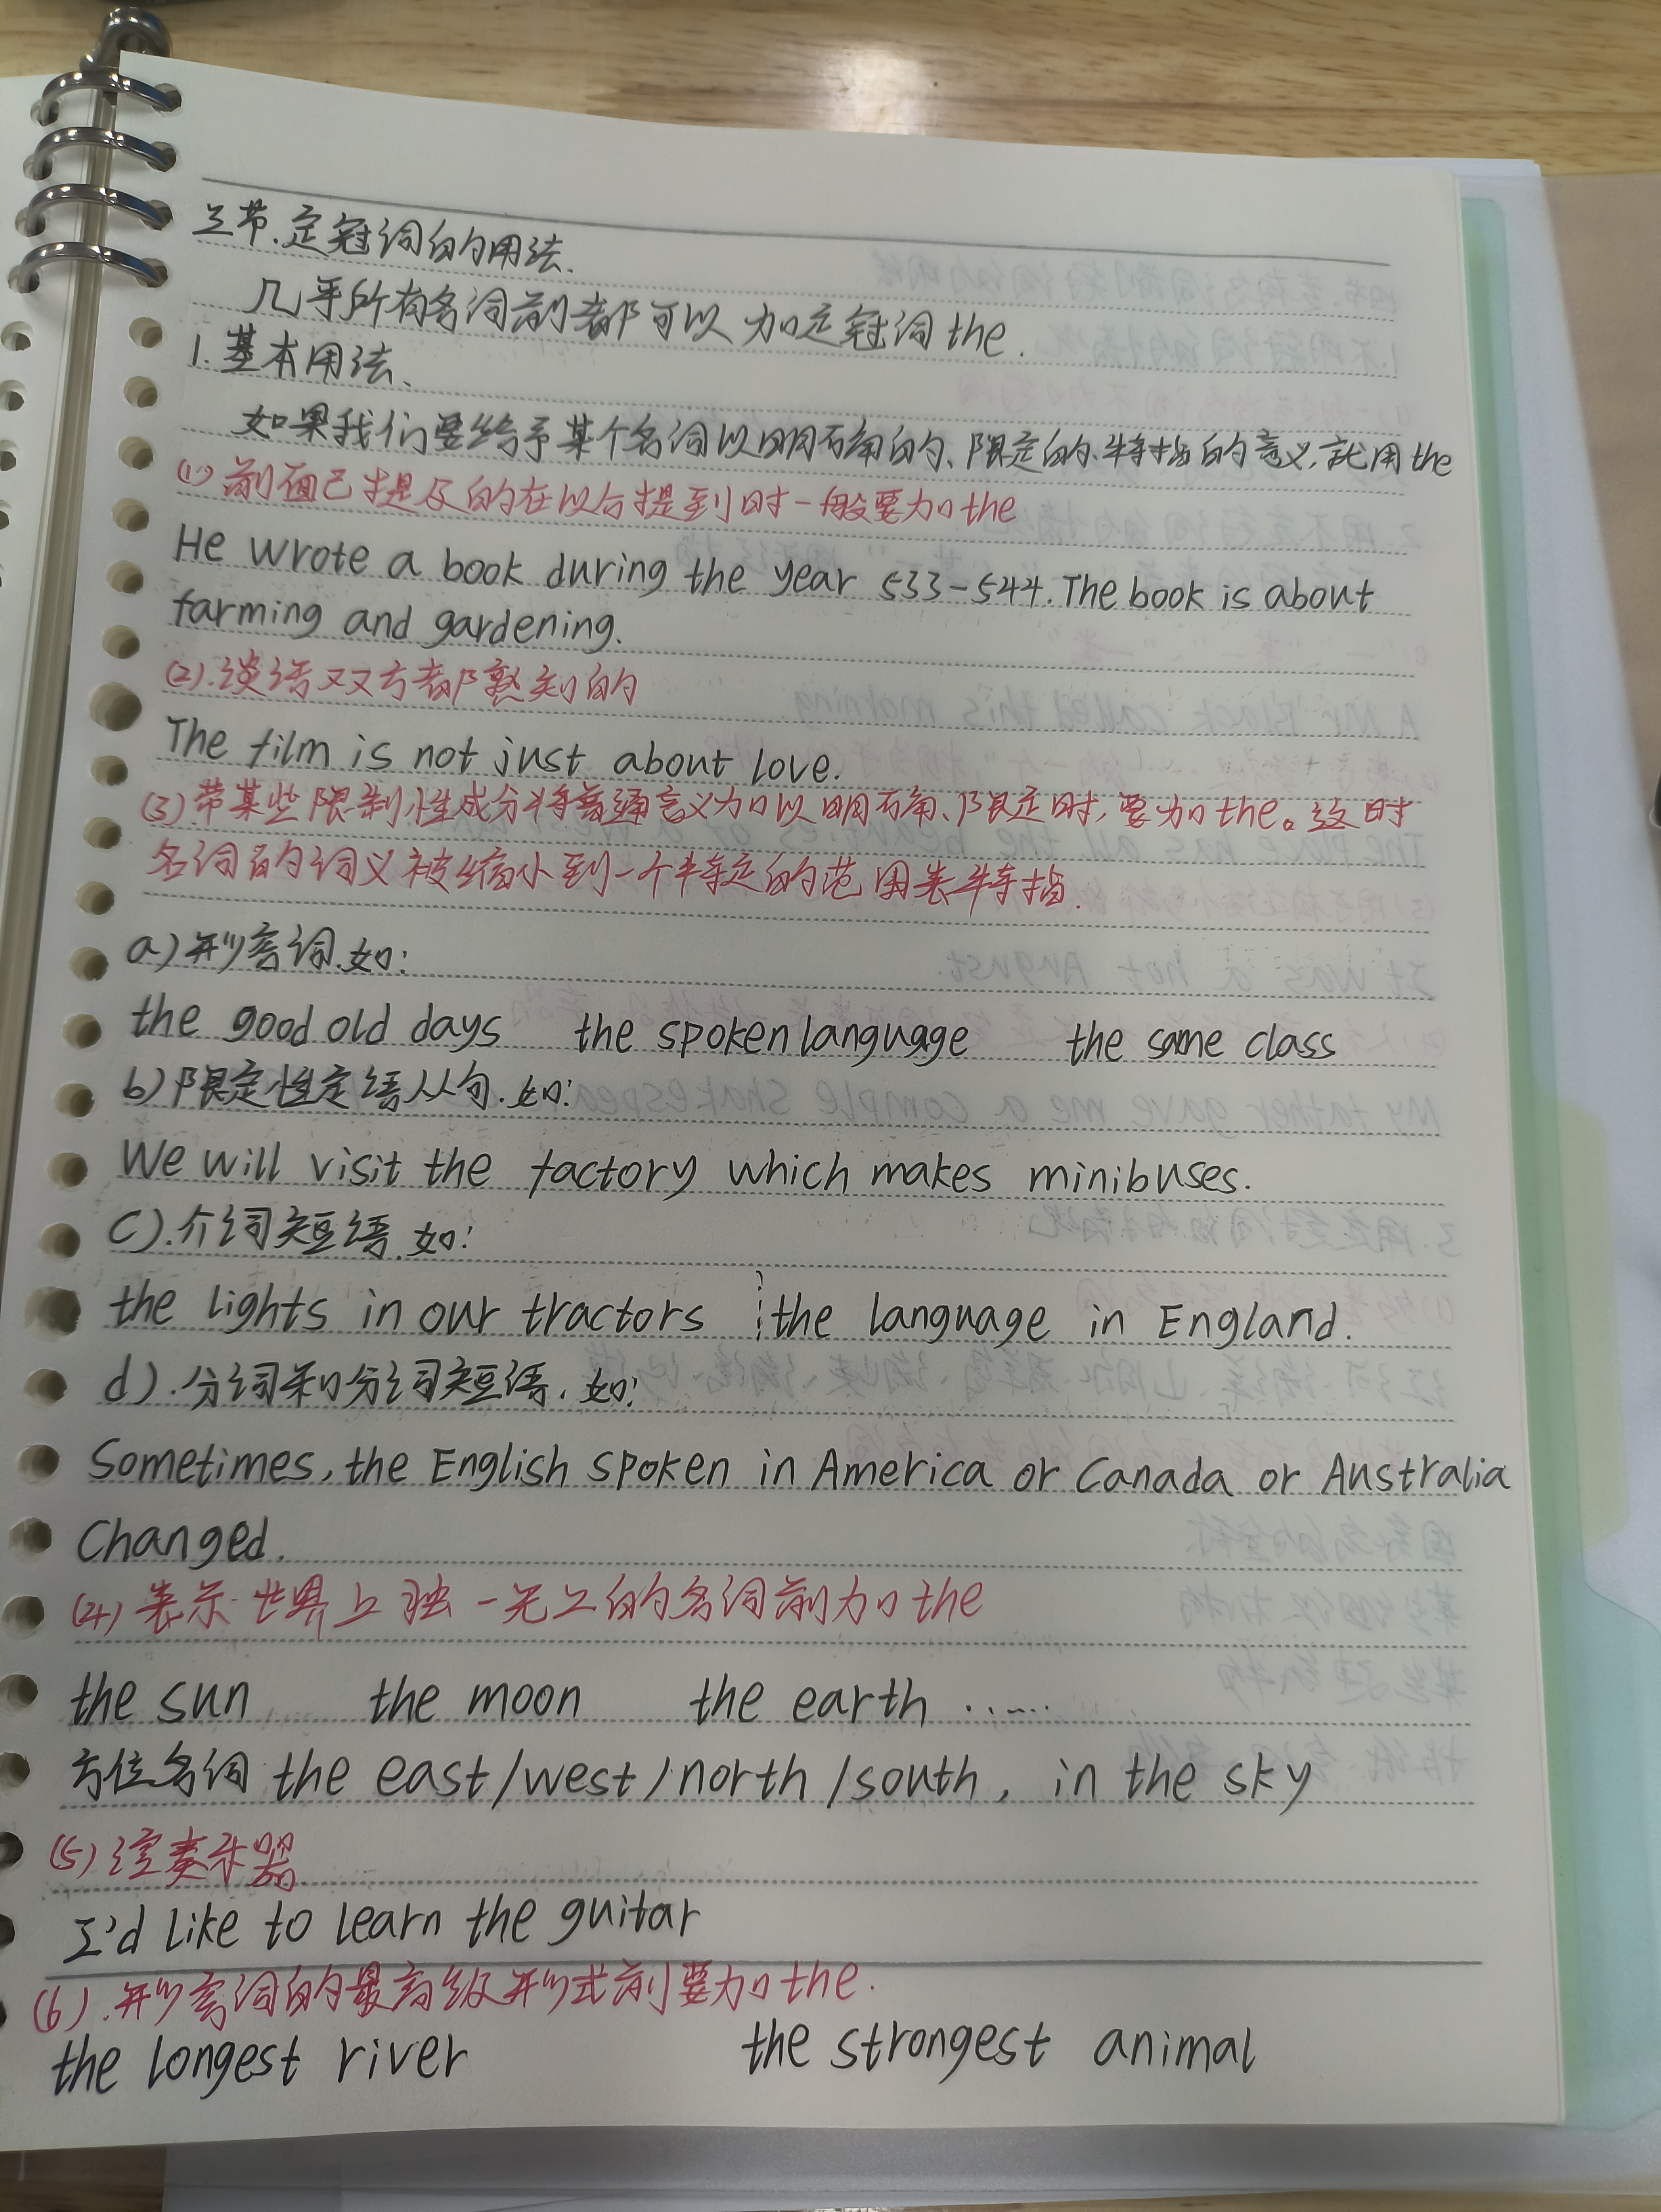 三节.定冠词的用法.
几乎所有名词前都可以加定冠词the.
1.基本用法、
如果我们要给予某个名词以明确的、限定的、特指的意义,就用the
(1)前面已提及的在以后提到时一般要加the
He wrote a book during the year 533-544. The book is about
farming and gardening.
(2).谈话双方都熟知的
The film is not just about love.
(3)带某些限制性成分将普通意义加以明确、限定时,要加the。这时
名词的词义被缩小到一个特定的范围表特指.
a)形容词.如:
the good old days the spoken language the same class
b)限定性定语从句.如:
We will visit the factory which makes minibuses.
c).介词短语.如:
the lights in our tractors the language in England.
d).分词和分词短语.如:
Sometimes, the English spoken in America or Canada or Australia
Changed.
(4)表示世界上独一无二的名词前加the
the sun the moon the earth ......
方位名词 the east/west/north/south, in the sky
(5)演奏乐器
I'd like to learn the guitar
(6).形容词的最高级形式前要加the.
the longest river the strongest animal